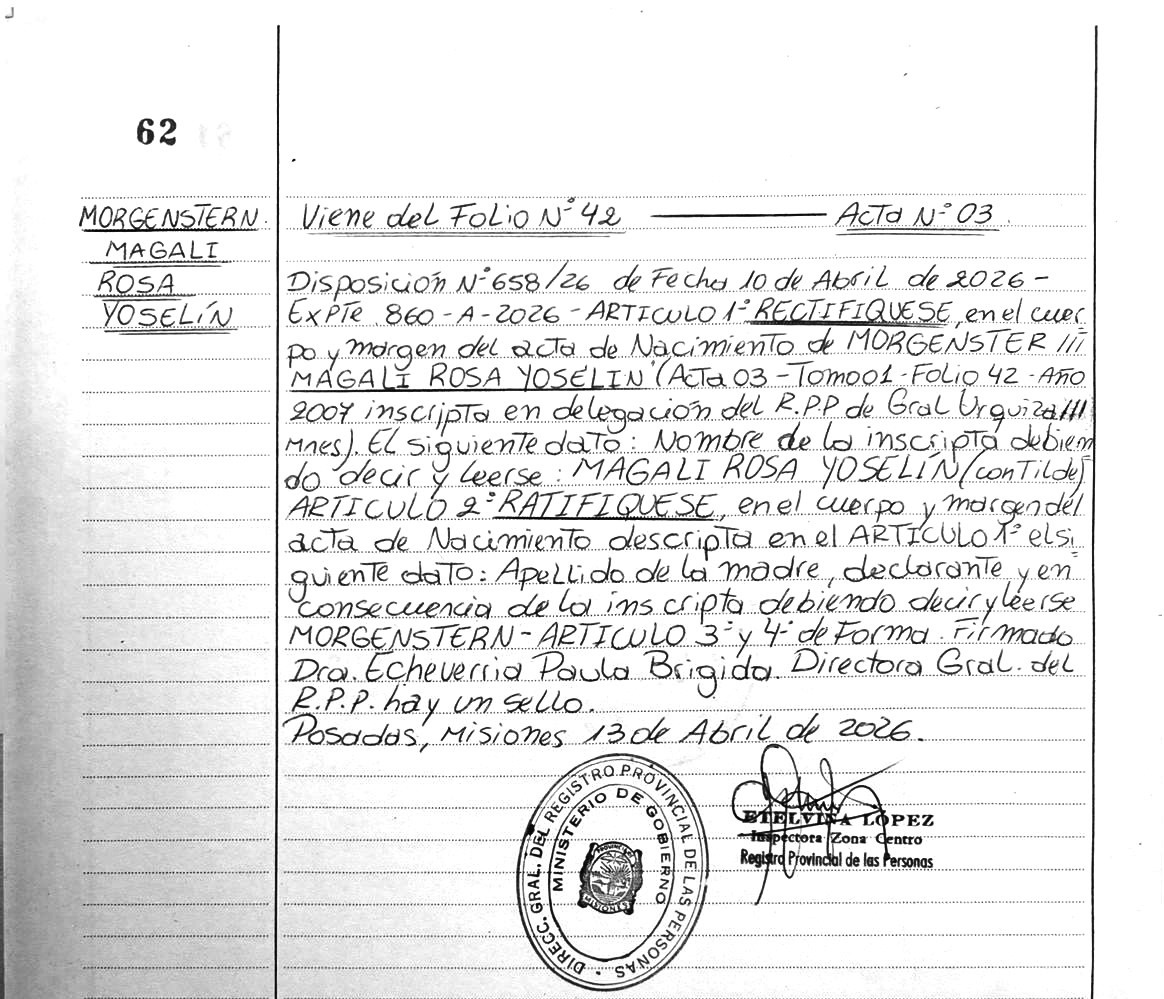 62
MORGENSTERN.
MAGALI
ROSA
YOSELÍN
Viene del Folio N° 42 ——— Acta N° 03.
Disposición N° 658/26 de Fecha 10 de Abril de 2026 -
Expte 860-A-2026 - ARTICULO 1° RECTIFIQUESE, en el cuer=
po y margen del acta de Nacimiento de MORGENSTER ///
MAGALI ROSA YOSELIN (Acta 03 - Tomo 01 - Folio 42 - Año
2007 inscripta en delegación del R.P.P de Gral Urquiza ///
Mnes). El siguiente dato: Nombre de la inscripta debien
do decir y leerse: MAGALI ROSA YOSELÍN (con Tilde)
ARTICULO 2° RATIFIQUESE, en el cuerpo y margen del
acta de Nacimiento descripta en el ARTICULO 1° el si=
guiente dato: Apellido de la madre, declarante y en
consecuencia de la inscripta debiendo decir y leerse
MORGENSTERN - ARTICULO 3° y 4° de Forma. Firmado
Dra. Echeverria Paula Brigida. Directora Gral. del
R.P.P. hay un sello.
Posadas, Misiones 13 de Abril de 2026.
DIRECC. GRAL. DEL REGISTRO PROVINCIAL DE LAS PERSONAS
MINISTERIO DE GOBIERNO
PROVINCIA
MISIONES
ETELVINA LÓPEZ
Inspectora Zona Centro
Registro Provincial de las Personas